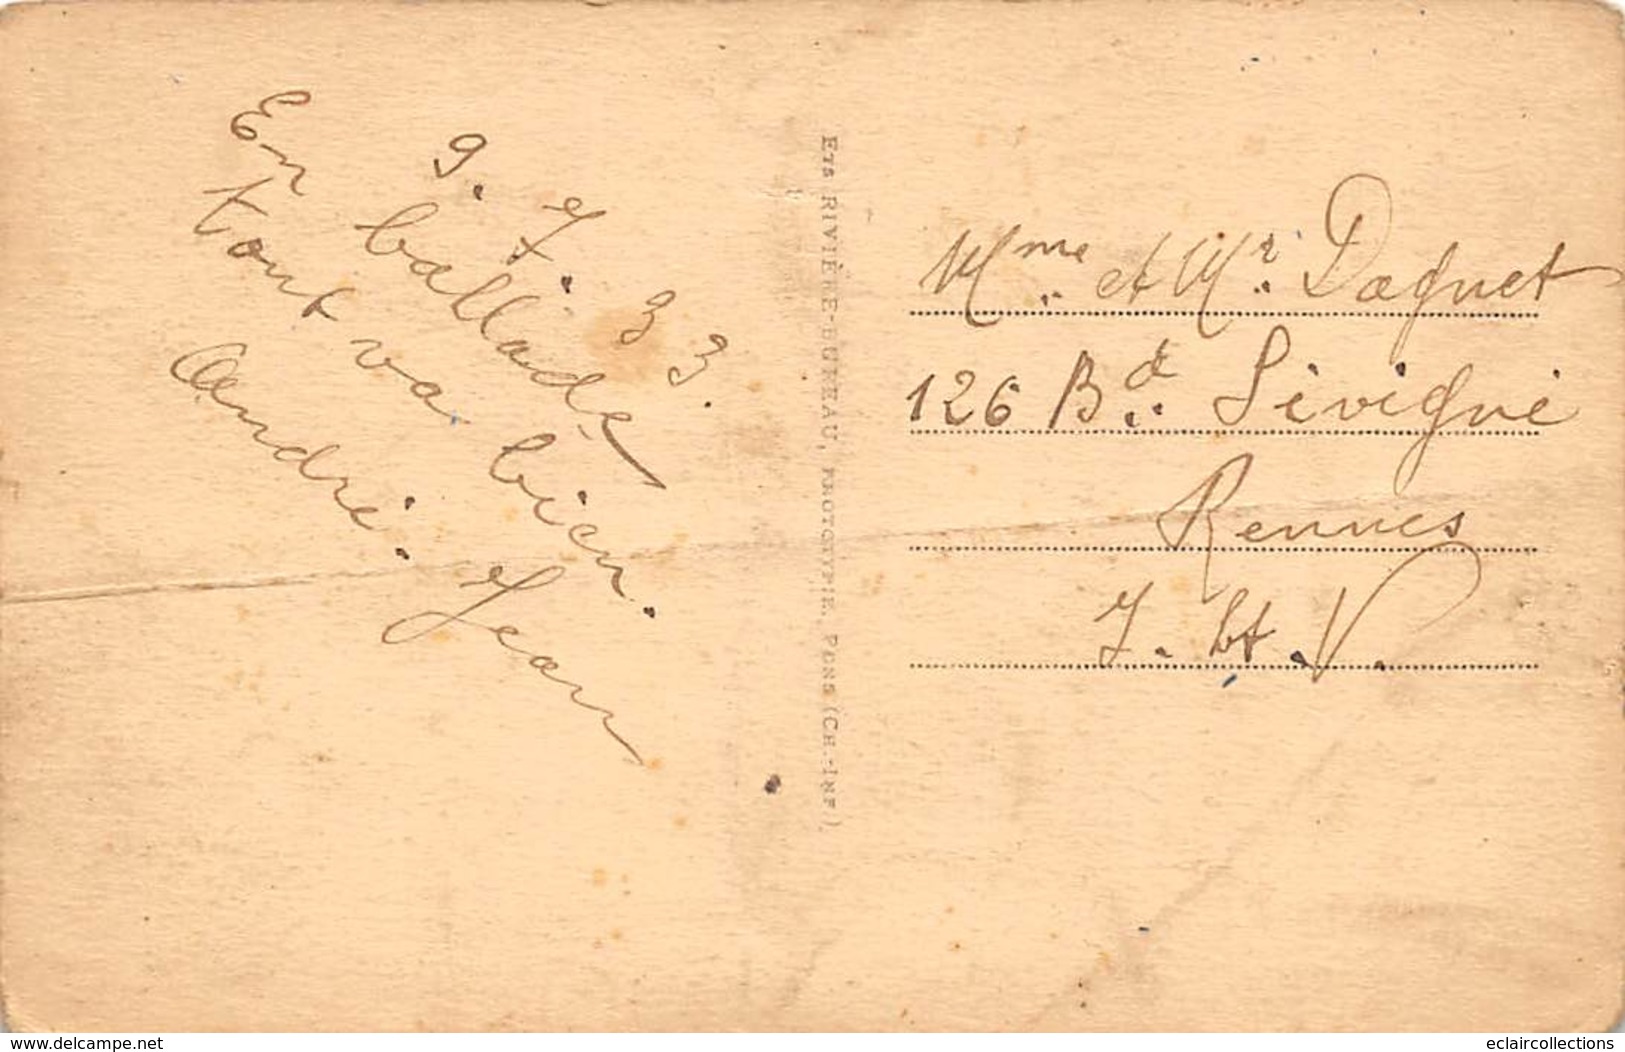 9. 7. 33.
En ballade
tout va bien.
André. Jean
ETS RIVIÈRE-BUREAU, PHOTOTYPIE, PONS (CH.-INF).
Mme. et Mr. Daguet
126 Bd. Sévigné
Rennes
I. et V.
www.delcampe.net
eclaircollections